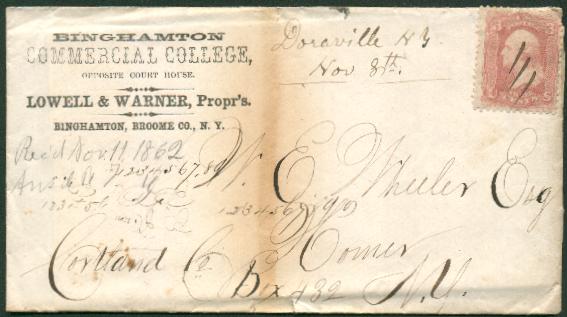 BINGHAMTON
COMMERCIAL COLLEGE,
OPPOSITE COURT HOUSE.
LOWELL & WARNER, Propr's.
BINGHAMTON, BROOME CO., N. Y.
Doraville N Y
Nov 8th.
Rec'd Nov. 11 1862
W. E. Wheeler Esq
Homer
Cortland Co
Box 432 N.Y.